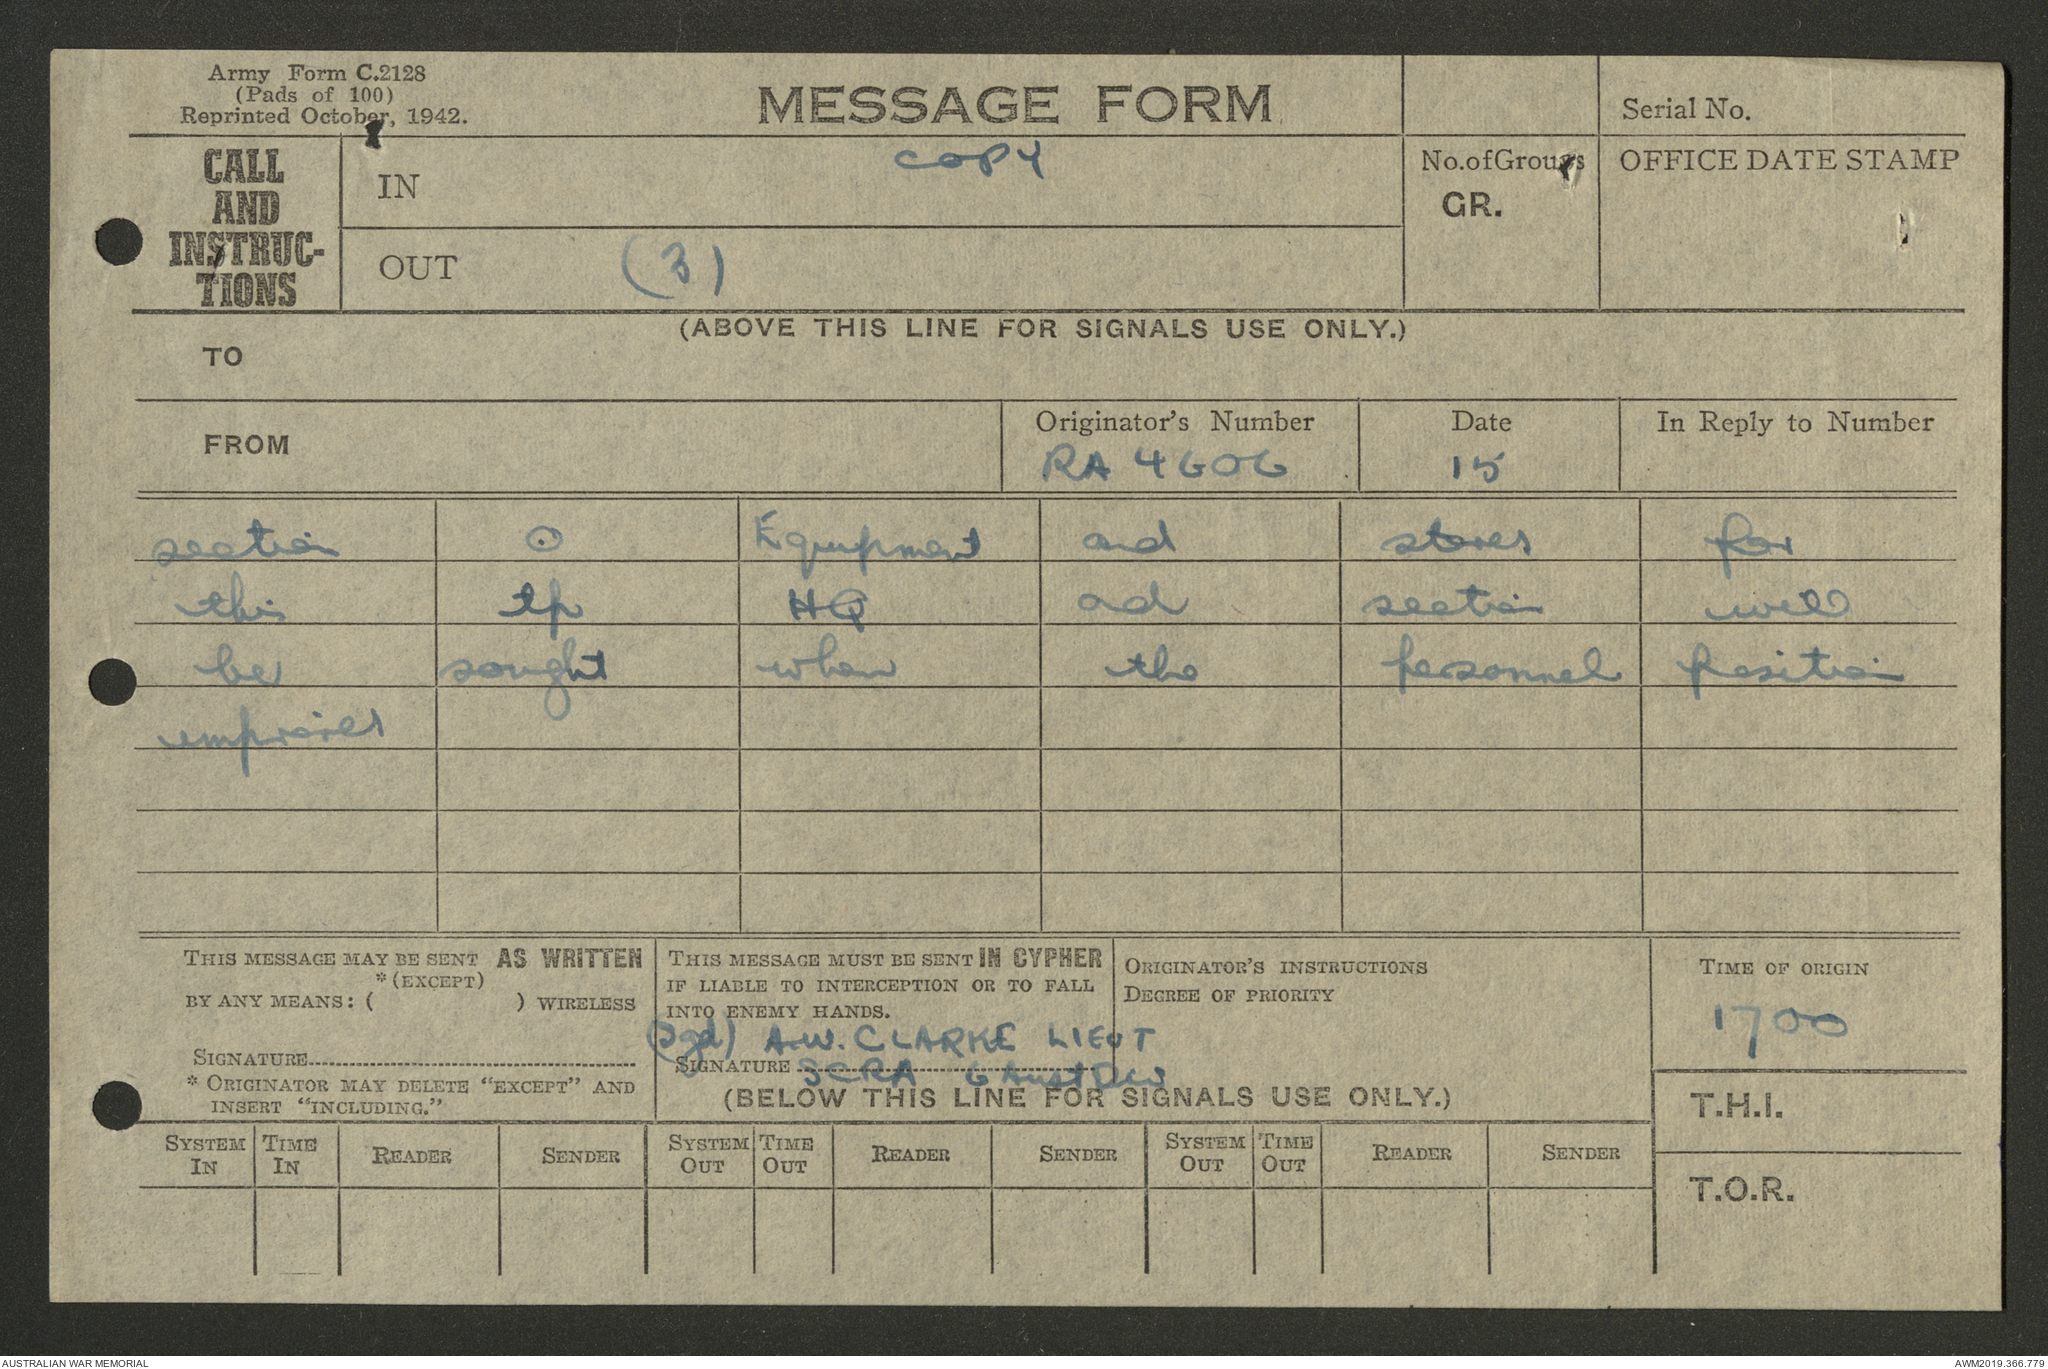 Army Form C.2128
(Pads of 100)
Reprinted October, 1942.
MESSAGE FORM
Serial No.
CALL
AND
INSTRUC-
TIONS
IN
COPY
No. of Groups
GR.
OFFICE DATE STAMP
OUT
(3)
(ABOVE THIS LINE FOR SIGNALS USE ONLY.)
TO
FROM
Originator's Number
RA 4606
Date
15
In Reply to Number
section ⊙ Equipment and stores for
this tp HQ ad section will
be sought when the personnel position
improves
THIS MESSAGE MAY BE SENT AS WRITTEN
*(EXCEPT)
BY ANY MEANS: ( ) WIRELESS
SIGNATURE
* ORIGINATOR MAY DELETE "EXCEPT" AND
INSERT "INCLUDING."
THIS MESSAGE MUST BE SENT IN CYPHER
IF LIABLE TO INTERCEPTION OR TO FALL
INTO ENEMY HANDS.
(Sgd) A.W. CLARKE LIEUT
SIGNATURE SCRA 6 Aust Div
ORIGINATOR'S INSTRUCTIONS
DEGREE OF PRIORITY
TIME OF ORIGIN
1700
(BELOW THIS LINE FOR SIGNALS USE ONLY.)
T.H.I.
SYSTEM IN TIME IN READER SENDER SYSTEM OUT TIME OUT READER SENDER SYSTEM OUT TIME OUT READER SENDER
T.O.R.
AUSTRALIAN WAR MEMORIAL
AWM2019.366.779